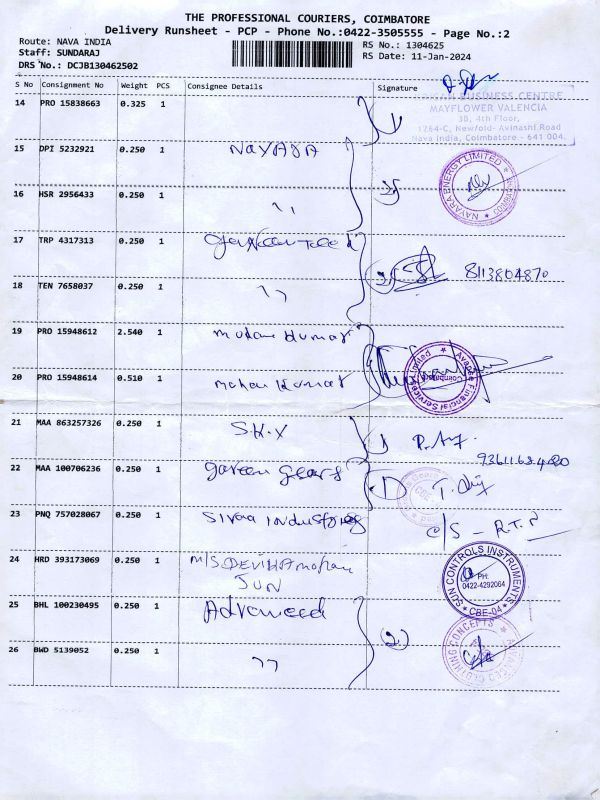 THE PROFESSIONAL COURIERS, COIMBATORE
Delivery Runsheet - PCP - Phone No.:0422-3505555 - Page No.:2
Route: NAVA INDIA
Staff: SUNDARAJ
DRS No.: DCJB130462502
RS No.: 1304625
RS Date: 11-Jan-2024
S No Consignment No Weight PCS Consignee Details Signature
BUSINESS CENTRE
MAYFLOWER VALENCIA
3B, 4th Floor,
1264-C, Newfold- Avinashi Road
Nava india, Coimbatore - 641 004.
14 PRO 15838663 0.325 1
15 DPI 5232921 0.250 1 NAYARA
NAYARA ENERGY LIMITED
16 HSR 2956433 0.250 1 ,,
17 TRP 4317313 0.250 1
8113804870
18 TEN 7658037 0.250 1 ,,
19 PRO 15948612 2.540 1 mohan kumar
Avanse Financial Services Limited
Coimbatore
20 PRO 15948614 0.510 1 mohan kumar
21 MAA 863257326 0.250 1 S.K.X
22 MAA 100706236 0.250 1 gareen gears
CBE
23 PNQ 757028067 0.250 1 sivaa industries C/S - R.T.
24 HRD 393173069 0.250 1 M/S.DEVIKA mohan
SUN
SUN CONTROLS INSTRUMENTS
PH:
0422-4292064
CBE-04
25 BHL 100230495 0.250 1 Advanced
ADVANCED CLOTHING CONCEPTS
26 BWD 5139052 0.250 1 ,,